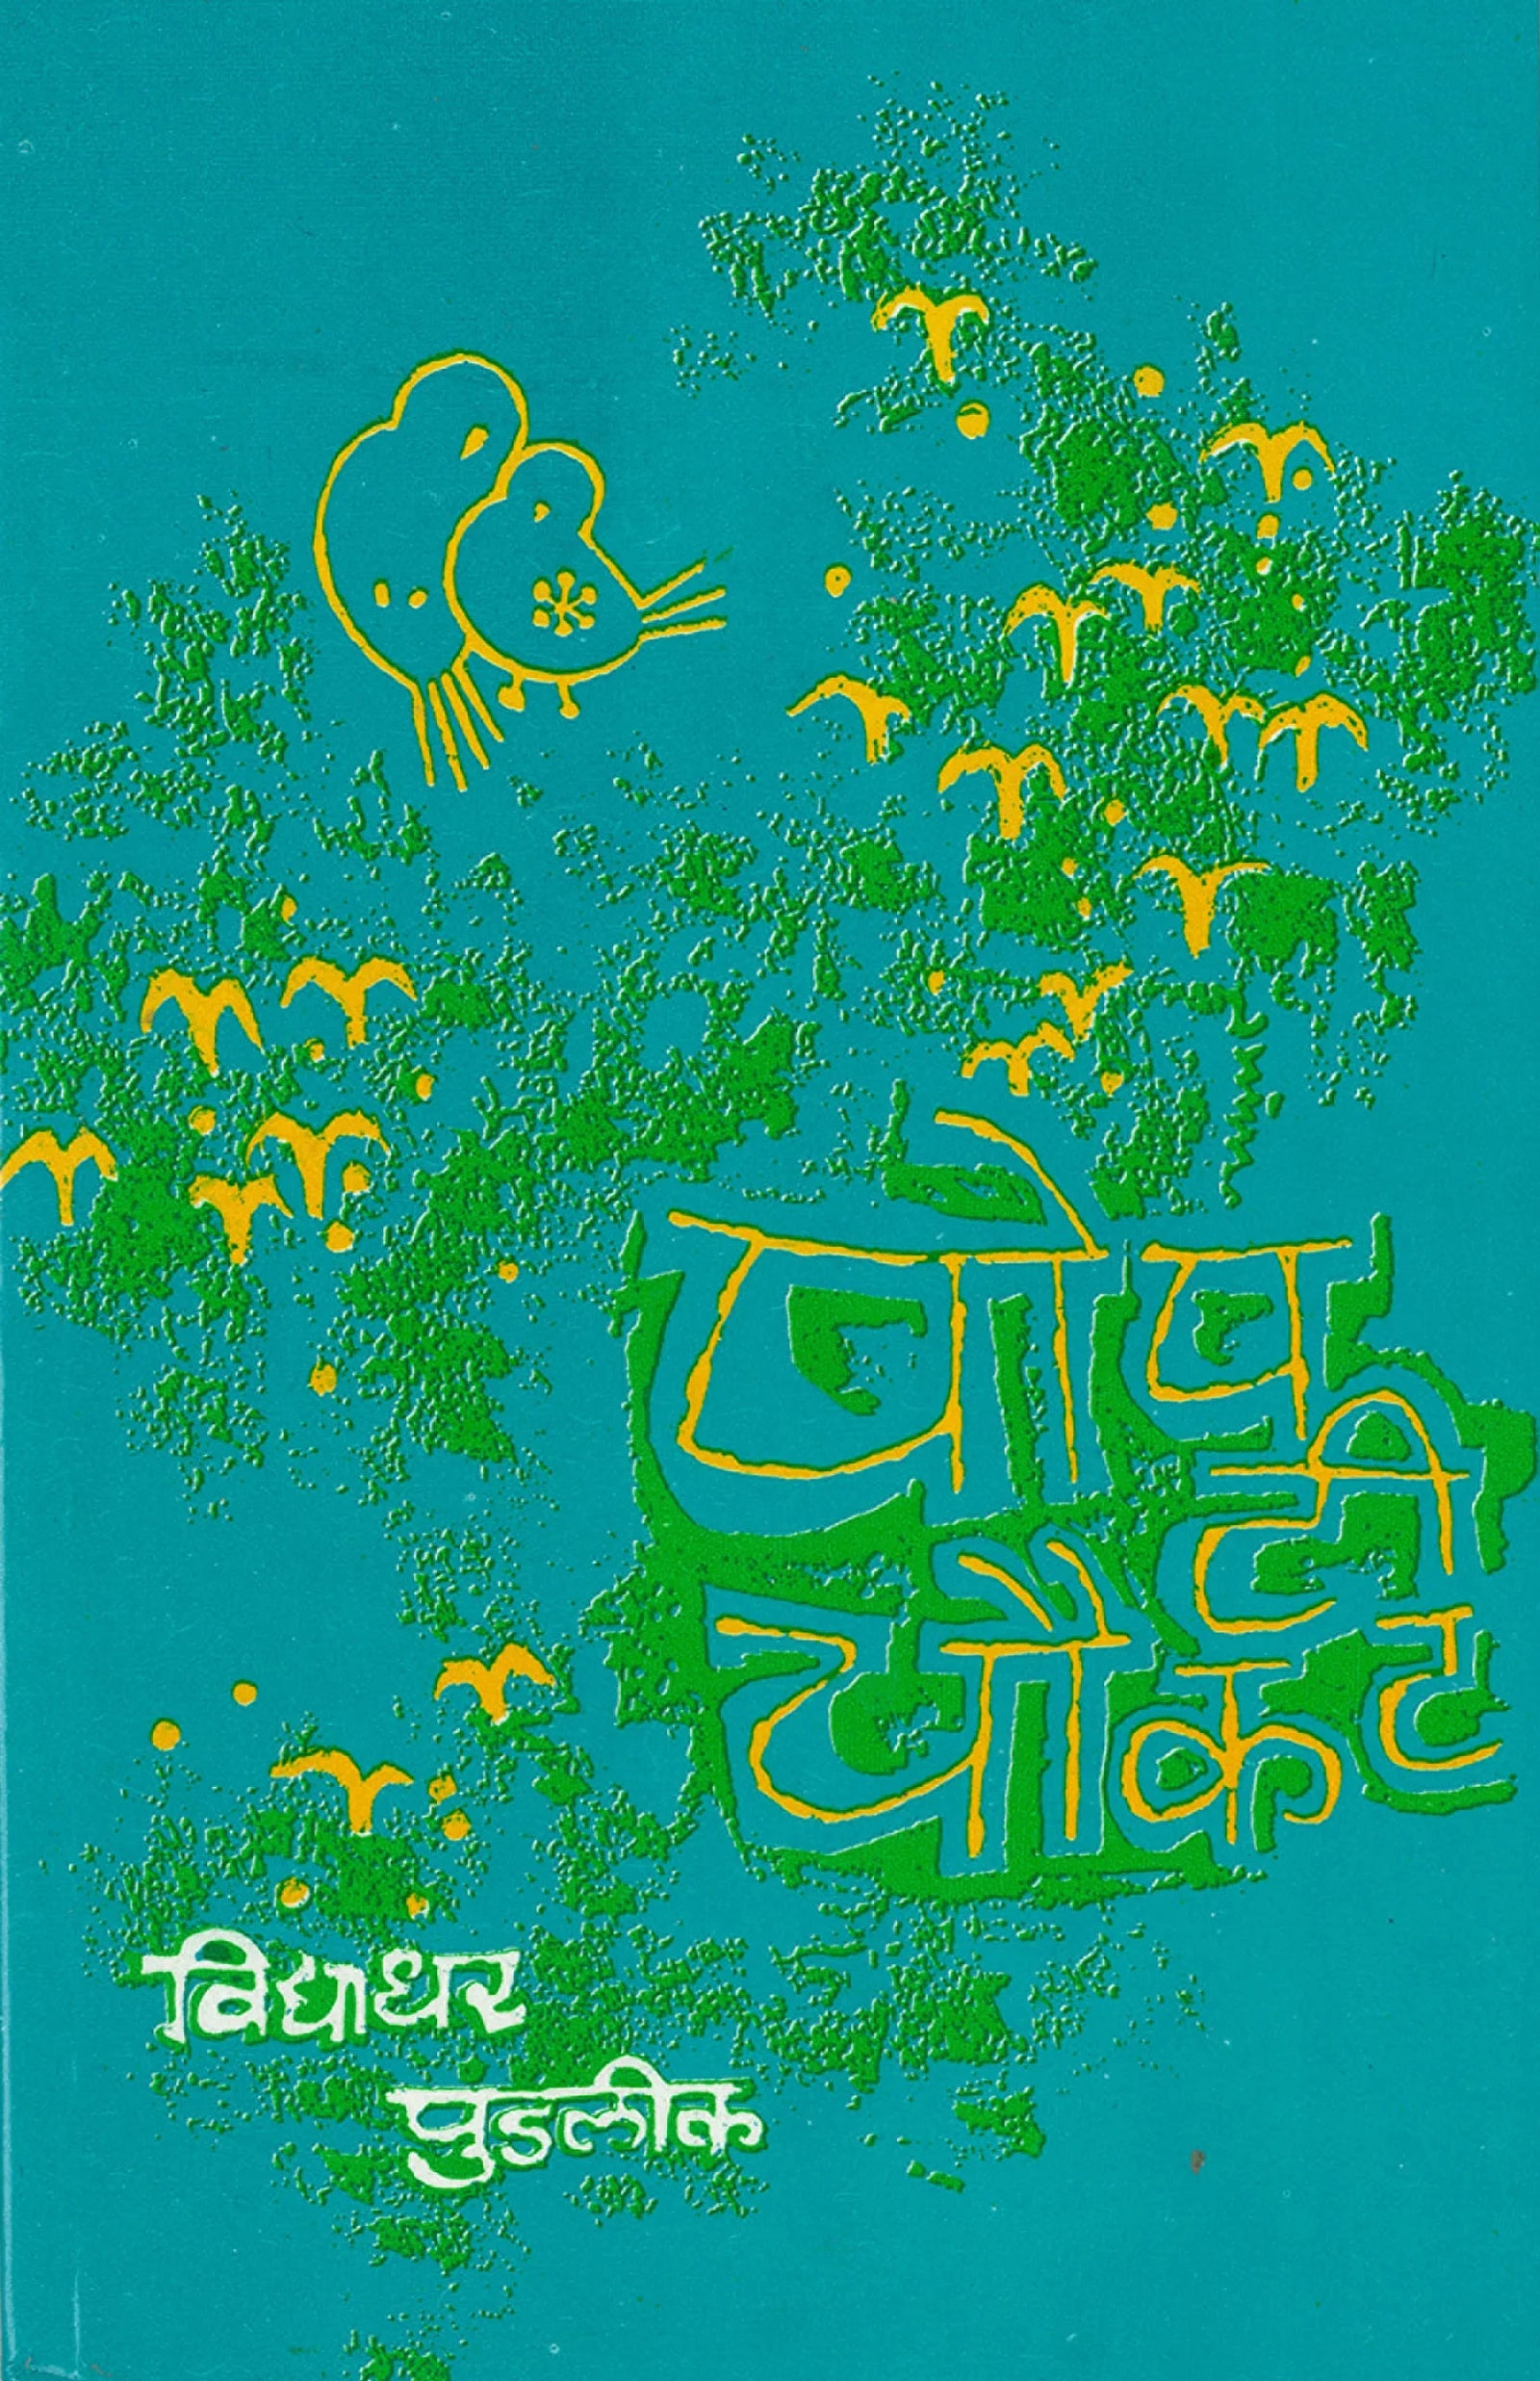 पोपटी
चौकट
विद्याधर
पुडलीक